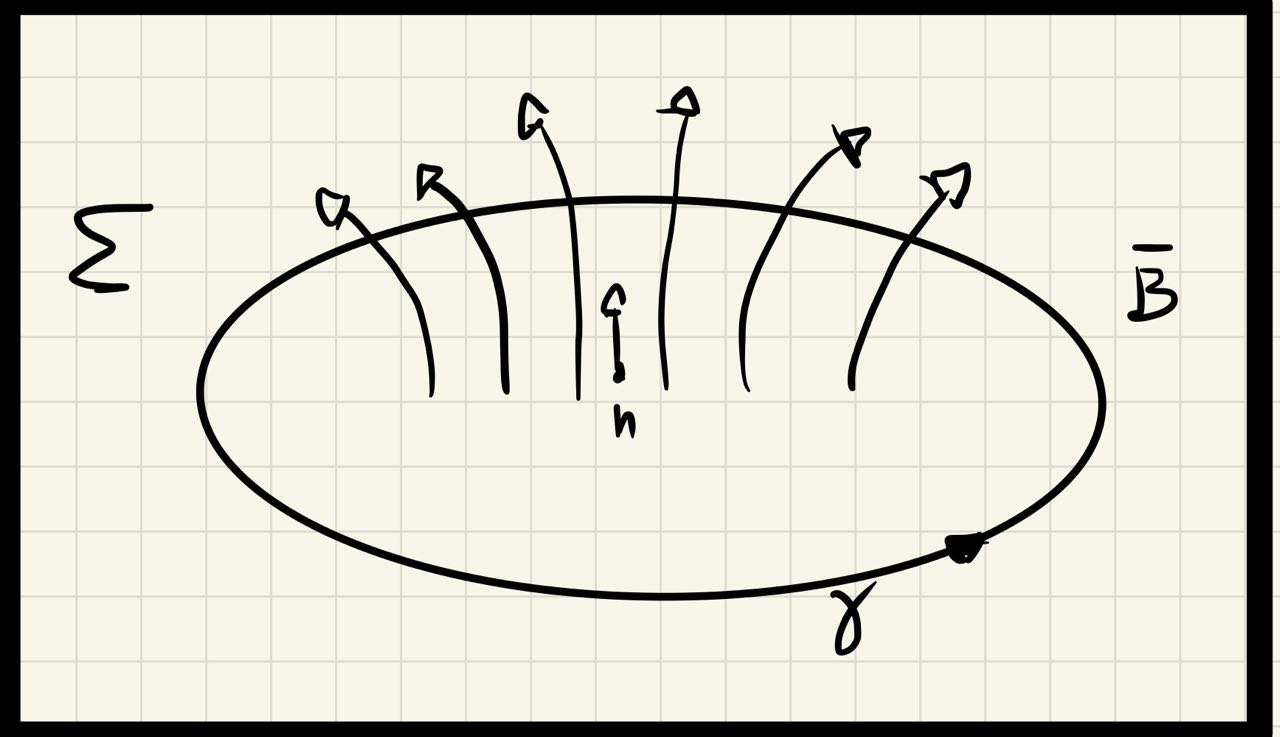 Σ
B̅
n
γ